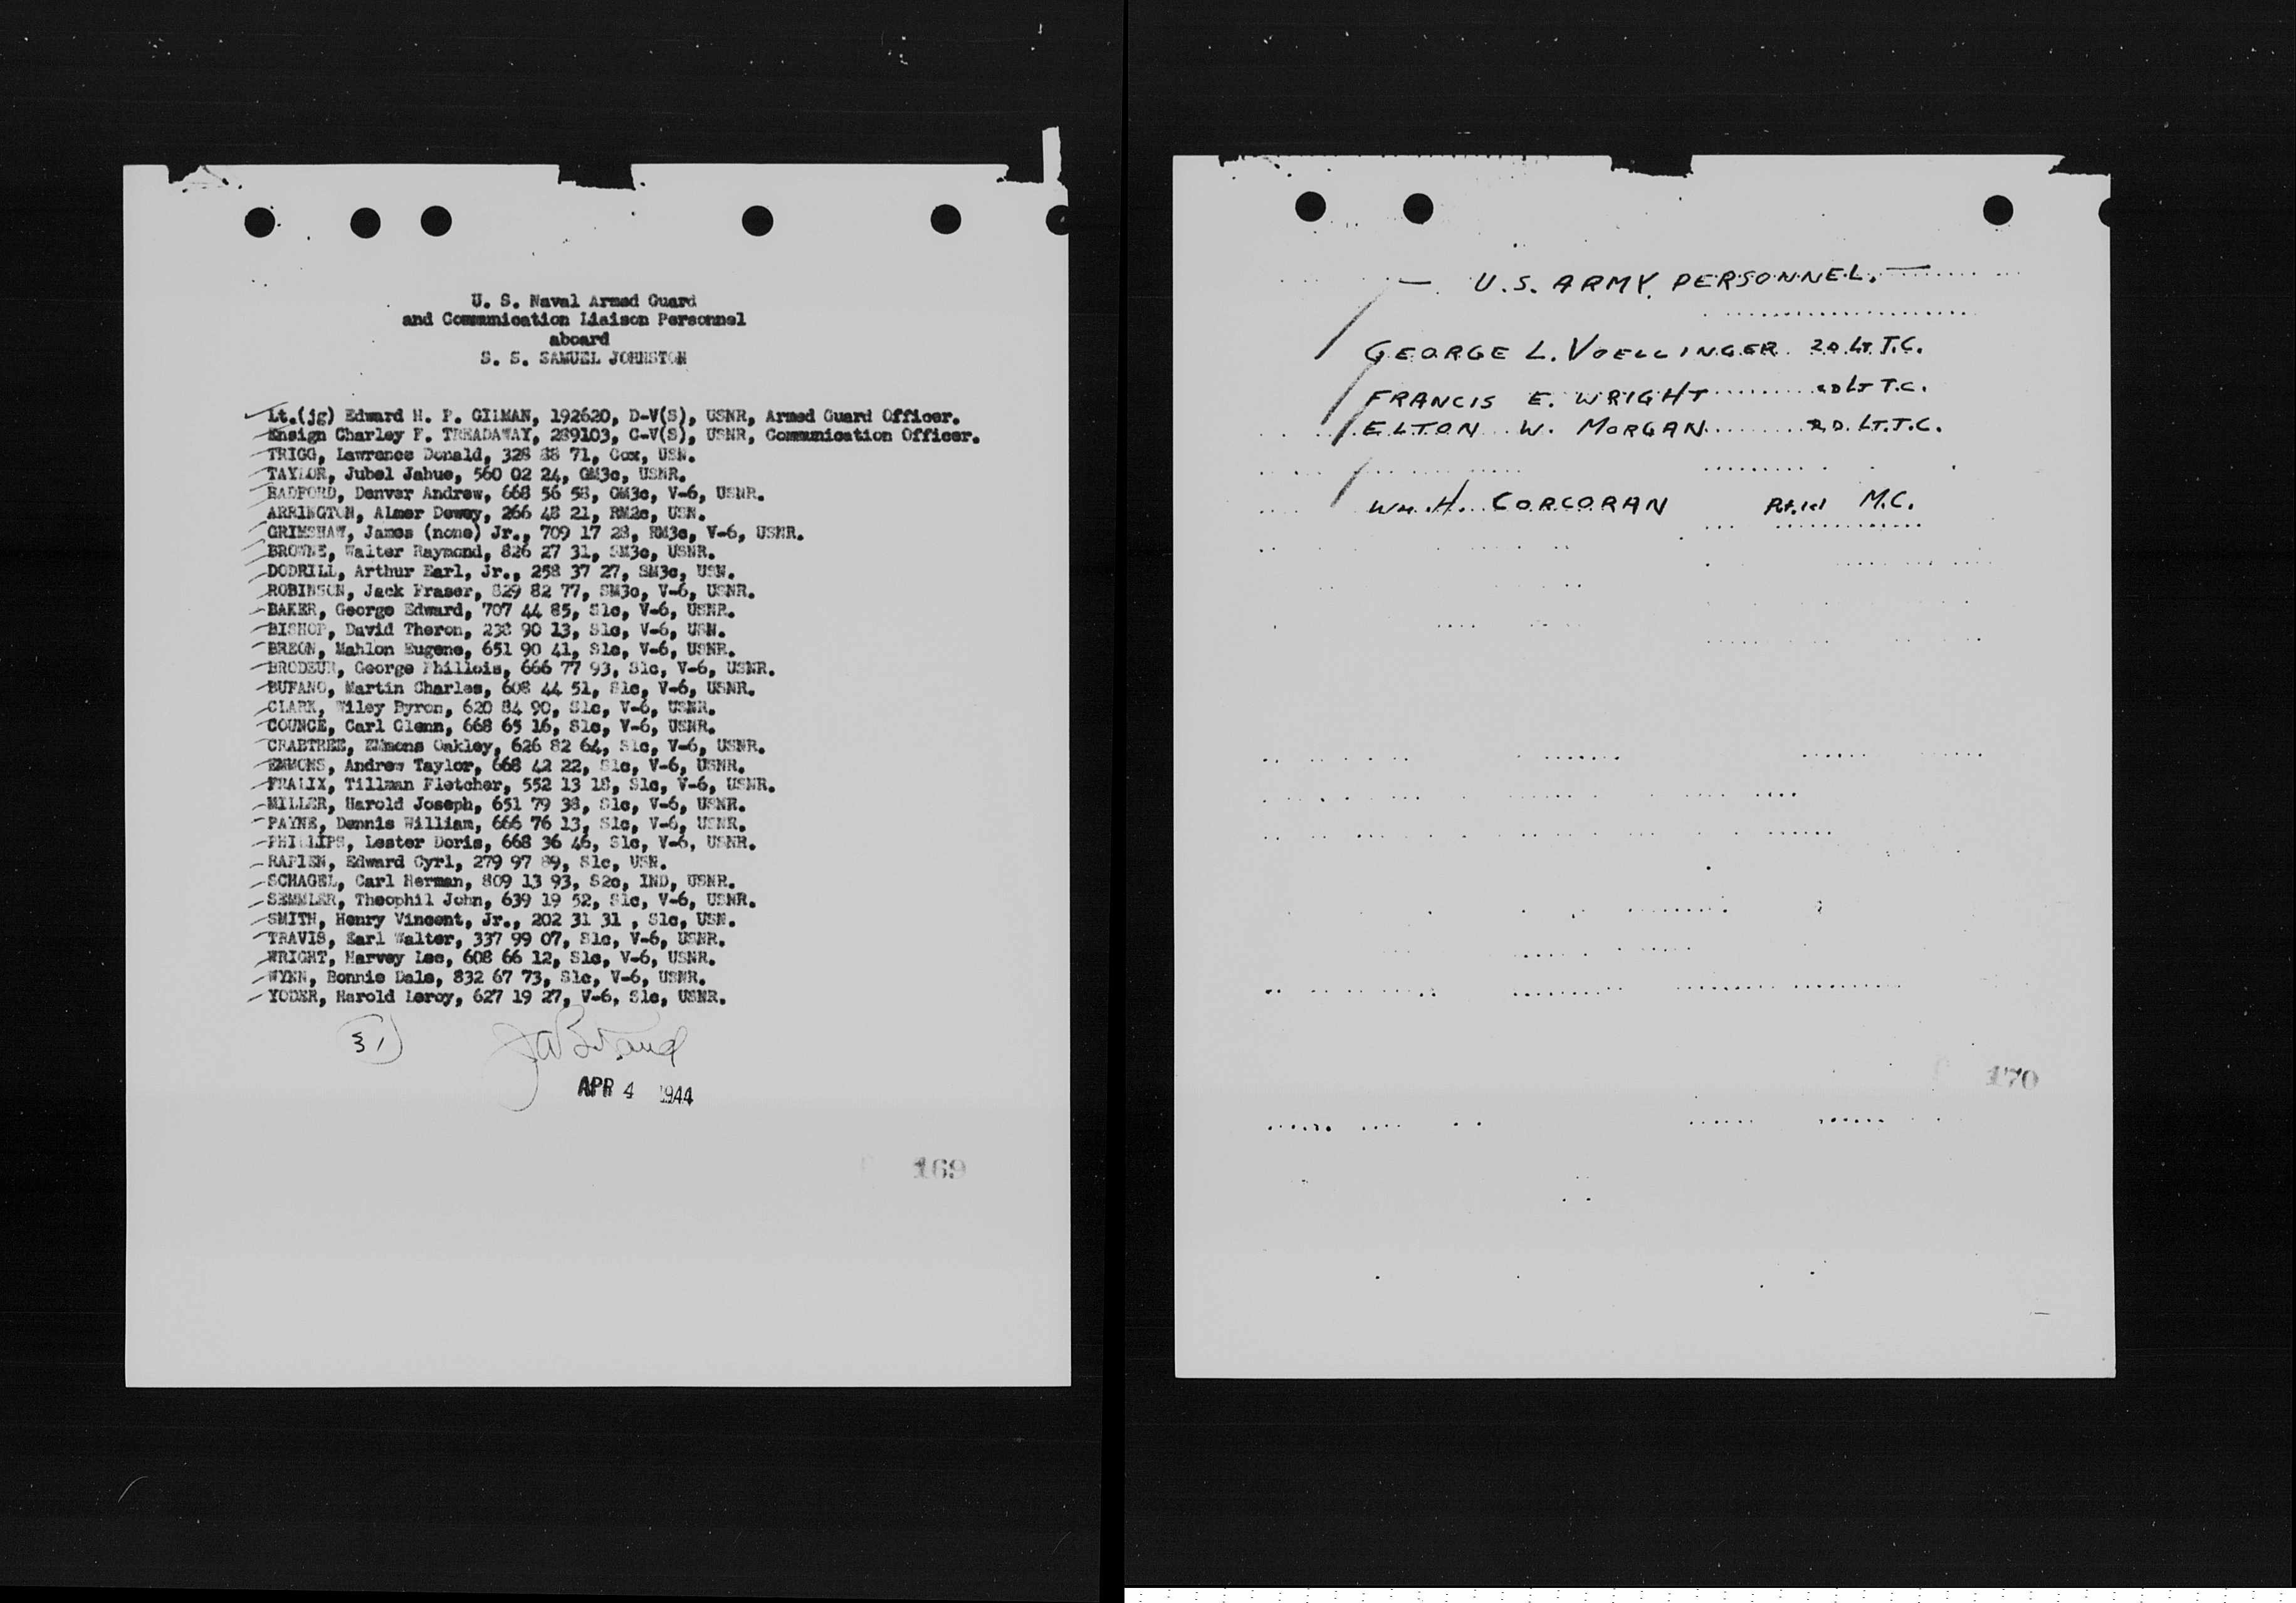 U. S. Naval Armed Guard
and Communication Liaison Personnel
aboard
S. S. SAMUEL JOHNSTON
Lt.(jg) Edward H. P. GILMAN, 192620, D-V(S), USNR, Armed Guard Officer.
Ensign Charley F. TREADAWAY, 289103, C-V(S), USNR, Communication Officer.
TRIGG, Lawrence Donald, 328 88 71, Cox, USN.
TAYLOR, Jubel Jahue, 560 02 24, GM3c, USNR.
RADFORD, Denver Andrew, 668 56 58, GM3c, V-6, USNR.
ARRINGTON, Almer Dewey, 266 48 21, RM2c, USN.
GRIMSHAW, James (none) Jr., 709 17 28, RM3c, V-6, USNR.
BROWNE, Walter Raymond, 826 27 31, SM3c, USNR.
DODRILL, Arthur Earl, Jr., 258 37 27, SM3c, USN.
ROBINSON, Jack Fraser, 829 82 77, SM3c, V-6, USNR.
BAKER, George Edward, 707 44 85, S1c, V-6, USNR.
BISHOP, David Theron, 238 90 13, S1c, V-6, USN.
BREON, Mahlon Eugene, 651 90 41, S1c, V-6, USNR.
BRODEUR, George Phillois, 666 77 93, S1c, V-6, USNR.
BUFANO, Martin Charles, 608 44 51, S1c, V-6, USNR.
CLARK, Wiley Byron, 620 84 90, S1c, V-6, USNR.
COUNCE, Carl Glenn, 668 65 16, S1c, V-6, USNR.
CRABTREE, Emmons Oakley, 626 82 64, S1c, V-6, USNR.
EMMONS, Andrew Taylor, 668 42 22, S1c, V-6, USNR.
FRALIX, Tillman Fletcher, 552 13 18, S1c, V-6, USNR.
MILLER, Harold Joseph, 651 79 38, S1c, V-6, USNR.
PAYNE, Dennis William, 666 76 13, S1c, V-6, USNR.
PHILLIPS, Lester Doris, 668 36 46, S1c, V-6, USNR.
RAPIEN, Edward Cyrl, 279 97 89, S1c, USN.
SCHAGEL, Carl Herman, 809 13 93, S2c, IND, USNR.
SEMMLER, Theophil John, 639 19 52, S1c, V-6, USNR.
SMITH, Henry Vincent, Jr., 202 31 31 , S1c, USN.
TRAVIS, Earl Walter, 337 99 07, S1c, V-6, USNR.
WRIGHT, Harvey Lee, 608 66 12, S1c, V-6, USNR.
WYNN, Bonnie Dale, 832 67 73, S1c, V-6, USNR.
YODER, Harold Leroy, 627 19 27, V-6, S1c, USNR.
31
APR 4 1944
169
— U.S. ARMY PERSONNEL. —
GEORGE L. VOELLINGER 2D. Lt. T.C.
FRANCIS E. WRIGHT 2D Lt T.C.
ELTON W. MORGAN 2D. LT. T.C.
Wm. H. CORCORAN Pvt. 1cl M.C.
170